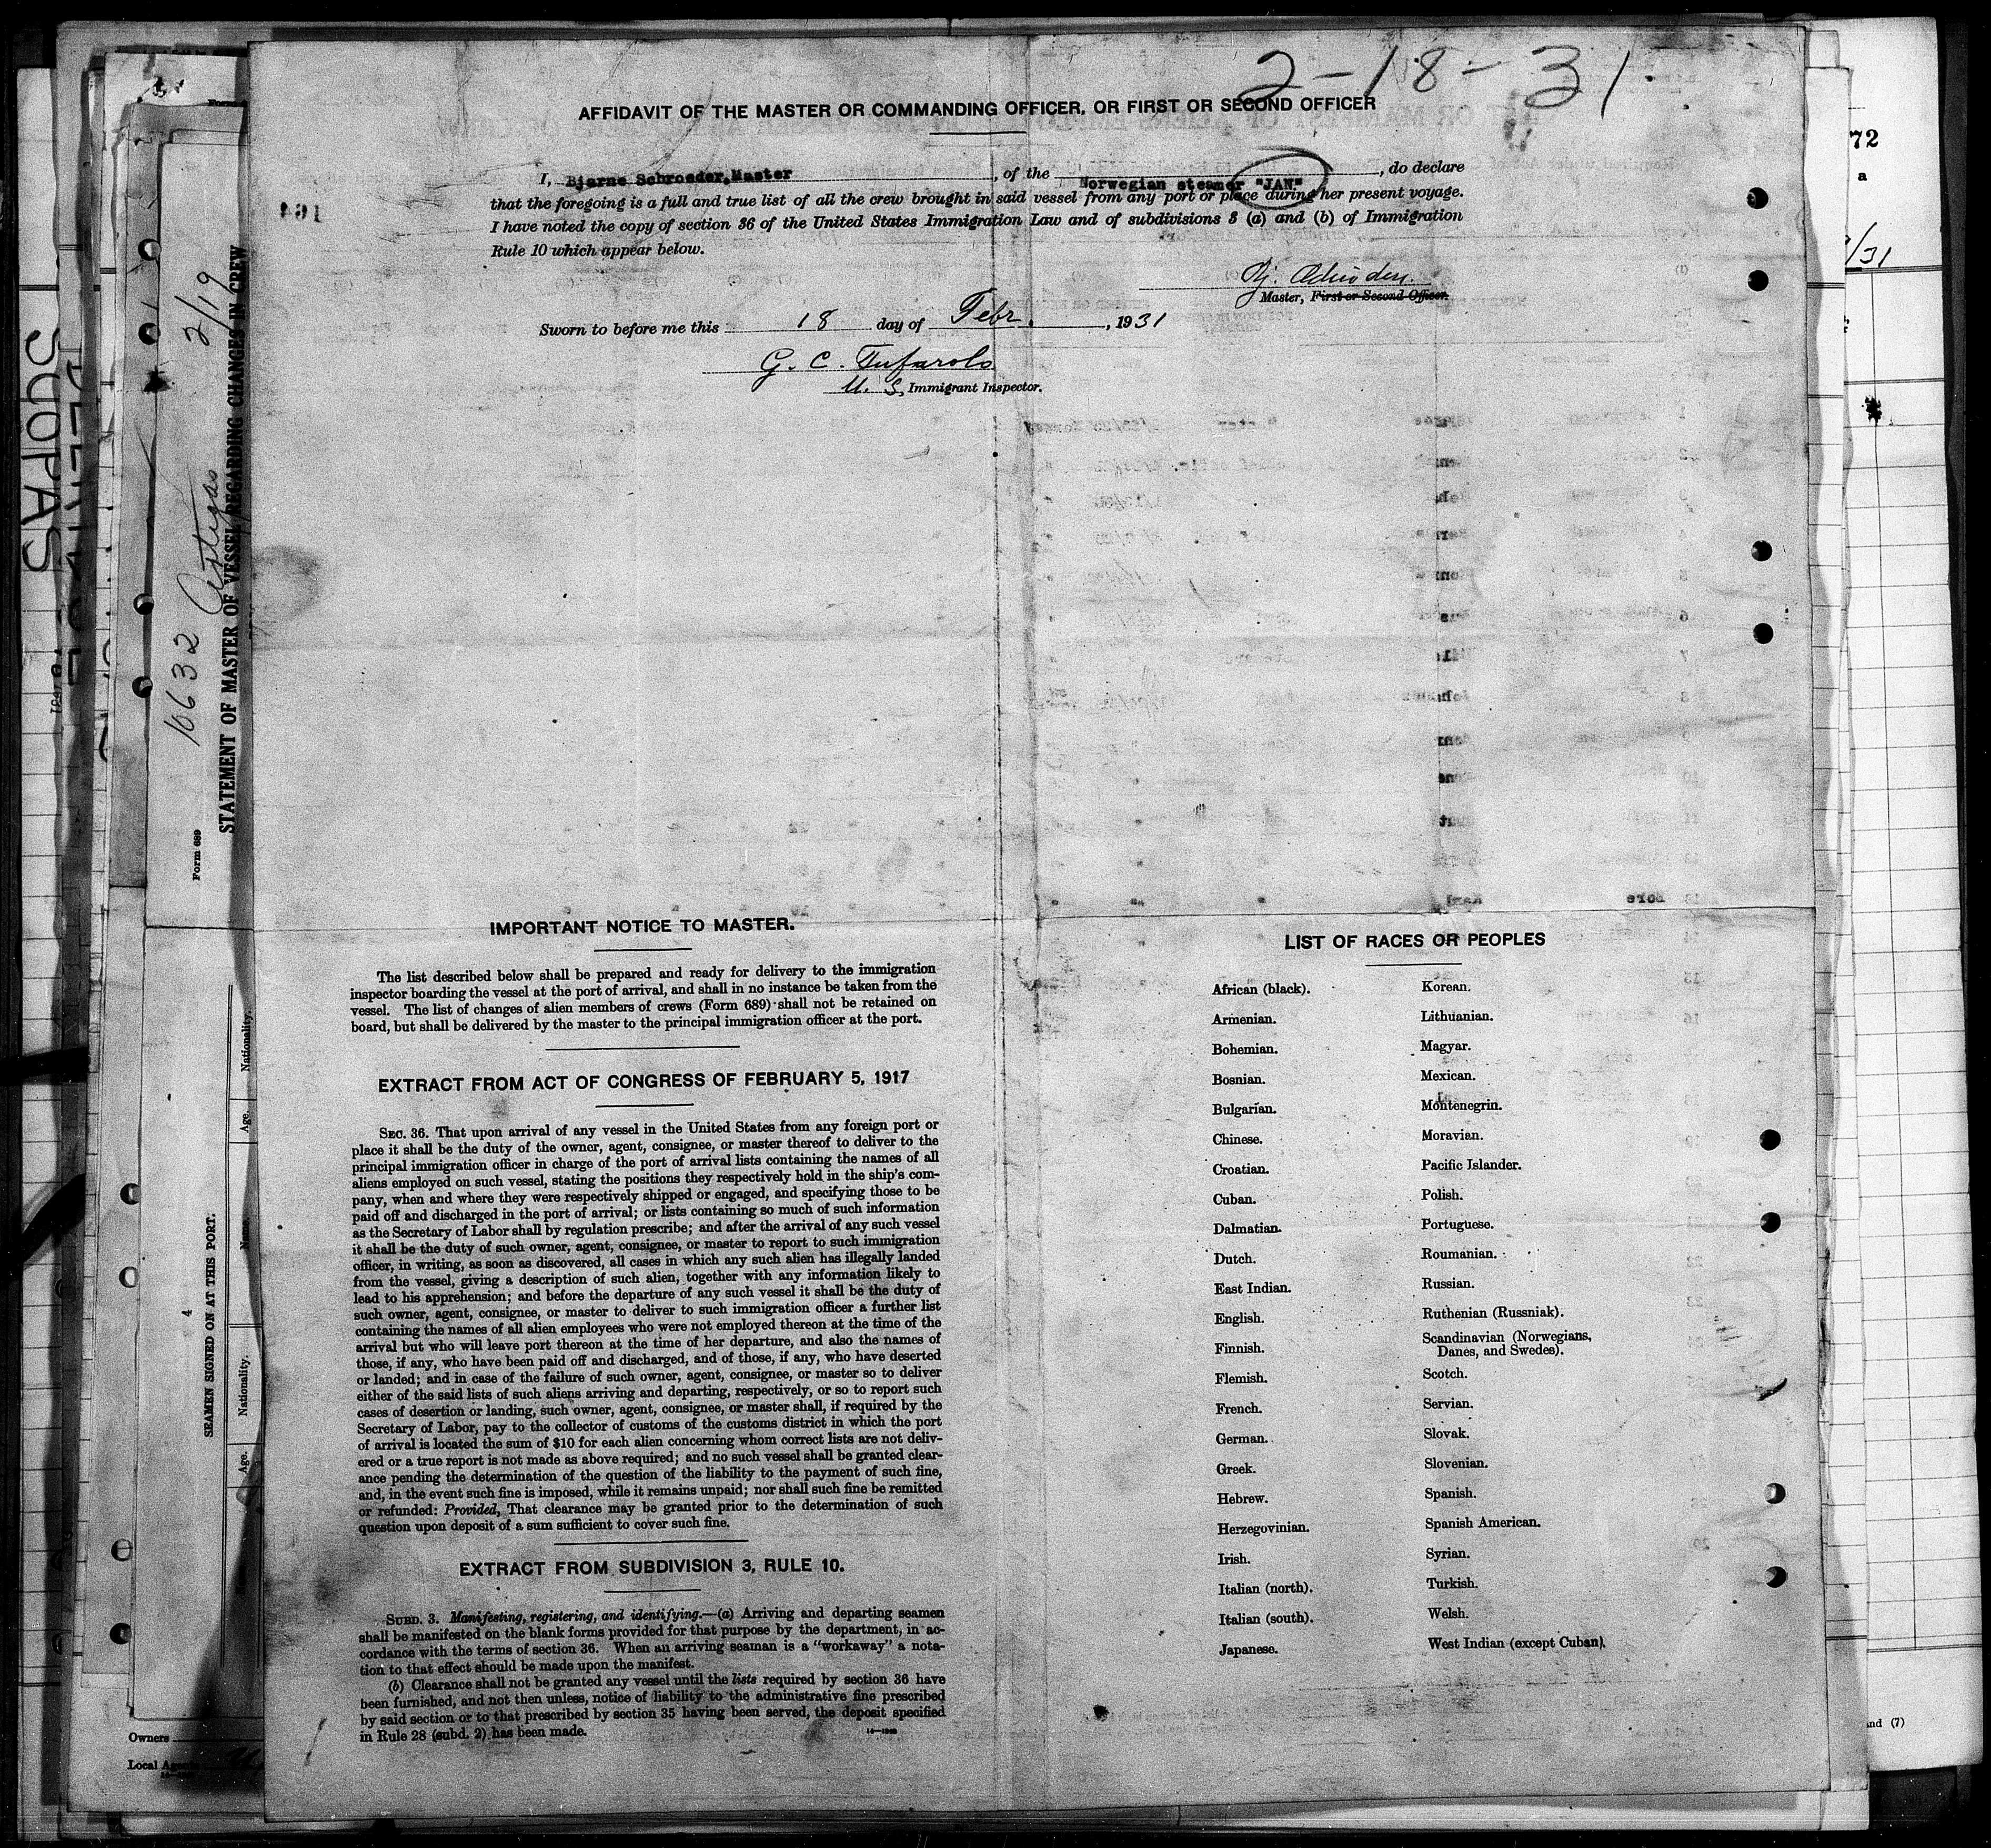 2-18-31
AFFIDAVIT OF THE MASTER OR COMMANDING OFFICER, OR FIRST OR SECOND OFFICER
I, Bjarne Schroeder, Master, of the Norwegian steamer "JAN", do declare
that the foregoing is a full and true list of all the crew brought in said vessel from any port or place during her present voyage.
I have noted the copy of section 36 of the United States Immigration Law and of subdivisions 3 (a) and (b) of Immigration
Rule 10 which appear below.
Master, First or Second Officer.
Sworn to before me this 18 day of Febr., 1931
G. C. Tufarolo
U. S. Immigrant Inspector.
IMPORTANT NOTICE TO MASTER.
The list described below shall be prepared and ready for delivery to the immigration
inspector boarding the vessel at the port of arrival, and shall in no instance be taken from the
vessel. The list of changes of alien members of crews (Form 689) shall not be retained on
board, but shall be delivered by the master to the principal immigration officer at the port.
EXTRACT FROM ACT OF CONGRESS OF FEBRUARY 5, 1917
SEC. 36. That upon arrival of any vessel in the United States from any foreign port or
place it shall be the duty of the owner, agent, consignee, or master thereof to deliver to the
principal immigration officer in charge of the port of arrival lists containing the names of all
aliens employed on such vessel, stating the positions they respectively hold in the ship's com-
pany, when and where they were respectively shipped or engaged, and specifying those to be
paid off and discharged in the port of arrival; or lists containing so much of such information
as the Secretary of Labor shall by regulation prescribe; and after the arrival of any such vessel
it shall be the duty of such owner, agent, consignee, or master to report to such immigration
officer, in writing, as soon as discovered, all cases in which any such alien has illegally landed
from the vessel, giving a description of such alien, together with any information likely to
lead to his apprehension; and before the departure of any such vessel it shall be the duty of
such owner, agent, consignee, or master to deliver to such immigration officer a further list
containing the names of all alien employees who were not employed thereon at the time of the
arrival but who will leave port thereon at the time of her departure, and also the names of
those, if any, who have been paid off and discharged, and of those, if any, who have deserted
or landed; and in case of the failure of such owner, agent, consignee, or master so to deliver
either of the said lists of such aliens arriving and departing, respectively, or so to report such
cases of desertion or landing, such owner, agent, consignee, or master shall, if required by the
Secretary of Labor, pay to the collector of customs of the customs district in which the port
of arrival is located the sum of $10 for each alien concerning whom correct lists are not deliv-
ered or a true report is not made as above required; and no such vessel shall be granted clear-
ance pending the determination of the question of the liability to the payment of such fine,
and, in the event such fine is imposed, while it remains unpaid; nor shall such fine be remitted
or refunded: Provided, That clearance may be granted prior to the determination of such
question upon deposit of a sum sufficient to cover such fine.
EXTRACT FROM SUBDIVISION 3, RULE 10.
SUBD. 3. Manifesting, registering, and identifying.—(a) Arriving and departing seamen
shall be manifested on the blank forms provided for that purpose by the department, in ac-
cordance with the terms of section 36. When an arriving seaman is a "workaway" a nota-
tion to that effect should be made upon the manifest.
(b) Clearance shall not be granted any vessel until the lists required by section 36 have
been furnished, and not then unless, notice of liability to the administrative fine prescribed
by said section or to that prescribed by section 35 having been served, the deposit specified
in Rule 28 (subd. 2) has been made.
LIST OF RACES OR PEOPLES
African (black).
Armenian.
Bohemian.
Bosnian.
Bulgarian.
Chinese.
Croatian.
Cuban.
Dalmatian.
Dutch.
East Indian.
English.
Finnish.
Flemish.
French.
German.
Greek.
Hebrew.
Herzegovinian.
Irish.
Italian (north).
Italian (south).
Japanese.
Korean.
Lithuanian.
Magyar.
Mexican.
Montenegrin.
Moravian.
Pacific Islander.
Polish.
Portuguese.
Roumanian.
Russian.
Ruthenian (Russniak).
Scandinavian (Norwegians,
Danes, and Swedes).
Scotch.
Servian.
Slovak.
Slovenian.
Spanish.
Spanish American.
Syrian.
Turkish.
Welsh.
West Indian (except Cuban).
10632 Artigas 2/19
STATEMENT OF MASTER OF VESSEL REGARDING CHANGES IN CREW
Form 689
4
SEAMEN SIGNED ON AT THIS PORT.
Nationality.
Age.
Name.
Nationality.
Age.
Owners
Local Agents
SUOPAS
72
a
/31
and (7)